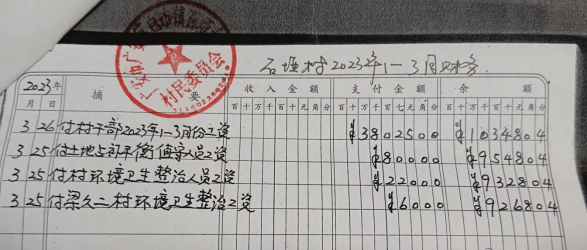 村民委员会
石堰村2023年1-3月财务
2023年
月 日 摘 要 收入金额 支付金额 余额
百十万千百十元角分 百十万千百十元角分 百十万千百十元角分
3 26 付村干部2023年1-3月份工资 ¥3802500 ¥1034804
3 25 付土地占补平衡值守人员工资 ¥80000 ¥954804
3 25 付村环境卫生整治人员工资 ¥22000 ¥932804
3 25 付梁久二村环境卫生整治工资 ¥6000 ¥926804